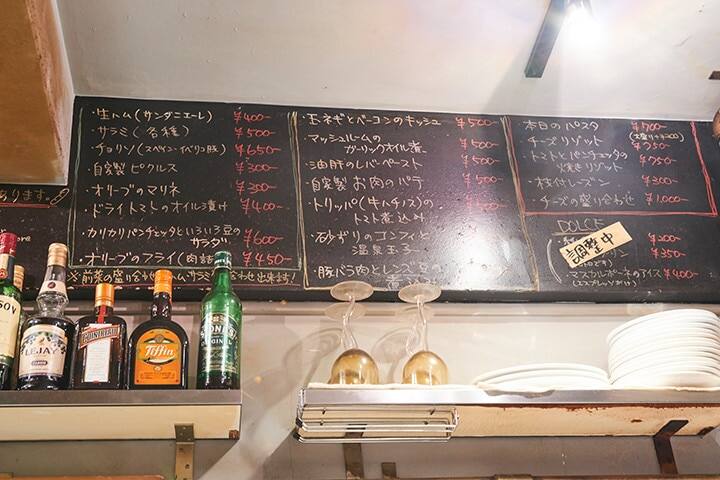 ・生ハム(サンダニエーレ) ¥400-
・サラミ(各種) ¥500-
・チョリソ(スペイン・イベリコ豚) ¥650-
・自家製 ピクルス ¥300-
・オリーブのマリネ ¥300-
・ドライトマトのオイル漬け ¥400-
・カリカリパンチェッタといろいろ豆の
サラダ ¥600-
・オリーブのフライ(肉詰 ¥450-
※前菜の盛り合わせ サラミ 合わせ出来ます!
・玉ネギとベーコンのキッシュ ¥500-
・マッシュルームの
ガーリックオイル煮 ¥500-
・油肝のレバーペースト ¥500-
・自家製 お肉のパテ ¥500-
・トリッパ(牛ハチノス)の
トマト煮込み
・砂ずりのコンフィと
温泉玉子
・豚バラ肉とレンズ豆の
本日のパスタ ¥700-
(大盛り+¥200)
・チーズリゾット ¥750-
・トマトとパンチェッタの
焼きリゾット ¥750-
・枝付レーズン ¥300-
・チーズの盛り合せ ¥1,000-
DOLCE
調整中
¥200-
¥350-
・マスカルポーネのアイス ¥400-
(エスプレッソがけ)
あります。
LEJAY
COINTREAU
Tiffin
GIN